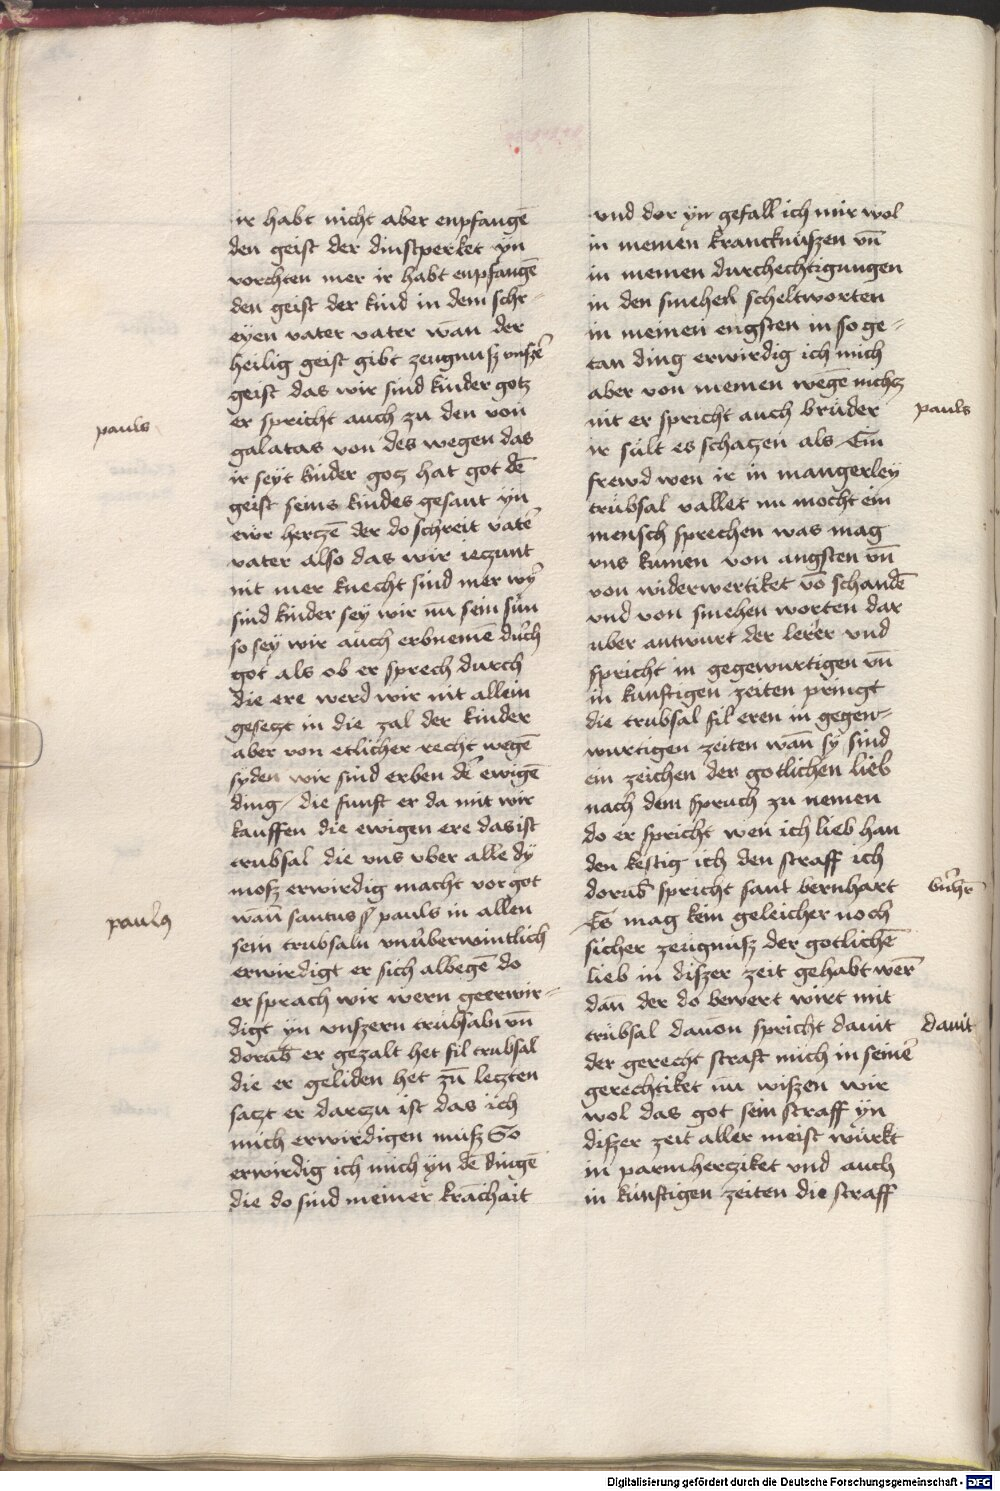 ir habt nicht aber enpfangē
den geist der dinstperket yn
vorchten mer ir habt enpfangē
den geist der kind in dem schr-
eyen vater vater wan der
heilig geist gibt zeugnusz vnszer
geist das wir sind kinder gotz
er spricht auch zu den von
pauls
galatas von des wegen das
ir seyt kinder gotz hat got dē
geist seins kindes gesant yn
ewr hertzē der do schreit vater
vater also das wir ieczunt
nit mer knecht sind mer wyr
sind kinder sey wir nu sein sün
so sey wir auch erbnemē durch
got als ob er sprech durch
die ere werd wir nit allein
gesetzt in die zal der kinder
aber von etlicher recht wegē
syden wir sind erben der ewigē
ding die funft er da mit wir
kauffen die ewigen ere das ist
trubsal die vns vber alle dy
mosz erwirdig macht vor got
paulus
wan̄ santus pauls in allen
sein trubsaln vnüberwintlich
erwirdigt er sich albegē do
er sprach wir wern geerwir=
digt yn vnszern trübsaln vn̄
dorub̄ er gezalt het fil trubsal
die er geliden het zū letzten
satzt er darczu ist das ich
mich erwirdigen musz So
erwirdig ich mich yn dē dingē
die do sind meiner krāchait
vnd dor yn gefall ich mir wol
in meinen krancknüszen vn̄
in meinen durchechtigungen
in den smehen scheltworten
in meinen engsten in so ge=
tan ding erwirdig ich mich
aber von meinen wegē nichtz
nit er spricht auch brüder
pauls
ir sült es schatzen als Ein
frewd wen ir in mangerley
trübsal vallet nu mocht ein
mensch sprechen was mag
vns kumen von angsten vn̄
von widerwertiket vō schandē
vnd von smehen worten dar
uber antwurt der lerer vnd
spricht in gegewurtigen vn̄
in kunftigen zeiten pringt
die trubsal fil eren in gegen=
wurtigen zeiten wan̄ sy sind
ein zeichen der gotlichen lieb
nach dem spruch zu nemen
do er spricht wen ich lieb han
den kestig ich den straff ich
dorub̄ spricht sant bernhart
Es mag kein geleicher noch
sicher zeugnusz der gotlichē
lieb in diszer zeit gehabt wer̄
dan̄ der do bewert wirt mit
trübsal dauon spricht dauit
dauit
der gerecht straft mich in seiner
gerechtiket nu wiszen wir
wol das got sein straff yn
diszer zeit aller meist würkt
in parmhercziket vnd auch
in künftigen zeiten die straff
Digitalisierung gefördert durch die Deutsche Forschungsgemeinschaft - DFG